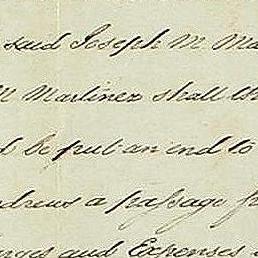 said Joseph M. Ma
M Martinez shall th
d be put an end to
ndrews a passage f
arges and Expenses